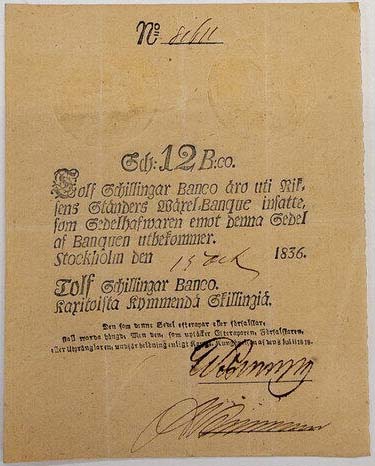 No 8611
Sch: 12 B:co.
Tolf Schillingar Banco äro uti Rik-
sens Ständers Wäxel-Banque insatte,
som Sedelhafwaren emot denna Sedel
af Banquen utbekommer.
Stockholm den 15 1836.
Tolf Schillingar Banco.
Kaxitoista Kymmendä Skillingiä.
Den som denne Sedel efterapar eller förfalskar,
skall warda hängd; Men den, som uptäcker Efteraparen, Förfalskaren,
eller Utprånglaren, undfår belöning enligt Kongl. Kungörelsen af den